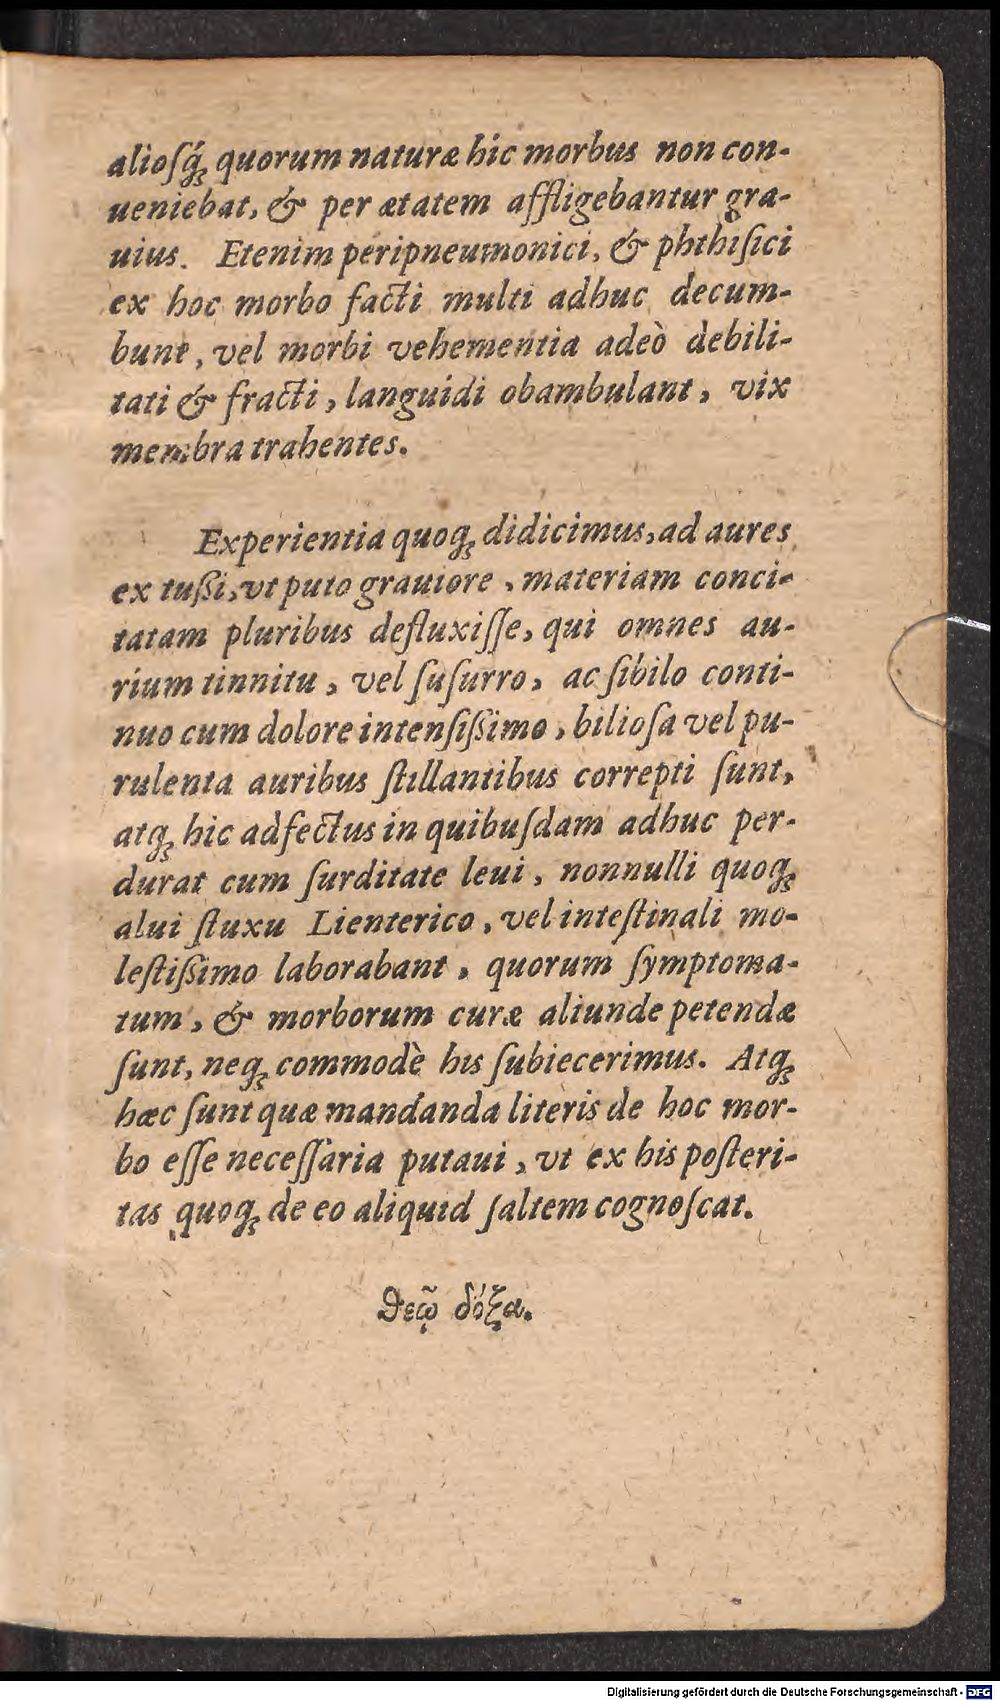 alioſq́ꝫ quorum naturæ hic morbus non con-
ueniebat, & per ætatem affligebantur gra-
uius. Etenim peripneumonici, & phthiſici
ex hoc morbo facti multi adhuc decum-
bunt, vel morbi vehementia adeò debili-
tati & fracti, languidi obambulant, vix
membra trahentes.
Experientia quoqꝫ didicimus, ad aures
ex tußi, vt puto grauiore, materiam conci-
tatam pluribus defluxiſſe, qui omnes au-
rium tinnitu, vel ſuſurro, ac ſibilo conti-
nuo cum dolore intenſißimo, bilioſa vel pu-
rulenta auribus ſtillantibus correpti ſunt,
atqꝫ hic adfectus in quibuſdam adhuc per-
durat cum ſurditate leui, nonnulli quoqꝫ
alui fluxu Lienterico, vel inteſtinali mo-
leſtißimo laborabant, quorum ſymptoma-
tum, & morborum curæ aliunde petendæ
ſunt, neqꝫ commodè his ſubiecerimus. Atqꝫ
hæc ſunt quæ mandanda literis de hoc mor-
bo eſſe neceſſaria putaui, vt ex his poſteri-
tas quoqꝫ de eo aliquid ſaltem cognoſcat.
θεῷ δόξα.
Digitalisierung gefördert durch die Deutsche Forschungsgemeinschaft - DFG